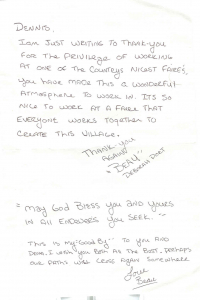 Dennis,
I am just writing to thank-you
for the privilege of working
at one of the countrys nicest faires,
you have made this a wonderful
atmosphere to work in. Its so
nice to work at a faire that
everyone works together to
create this village.
Thank you
again
"Beau"
Deborah
"May God Bless you and yours
in all endeavers you seek."
This is my "Good By" to you and
I wish you both all the best. Perhaps
our paths will cross again somewhere
Love
Beau